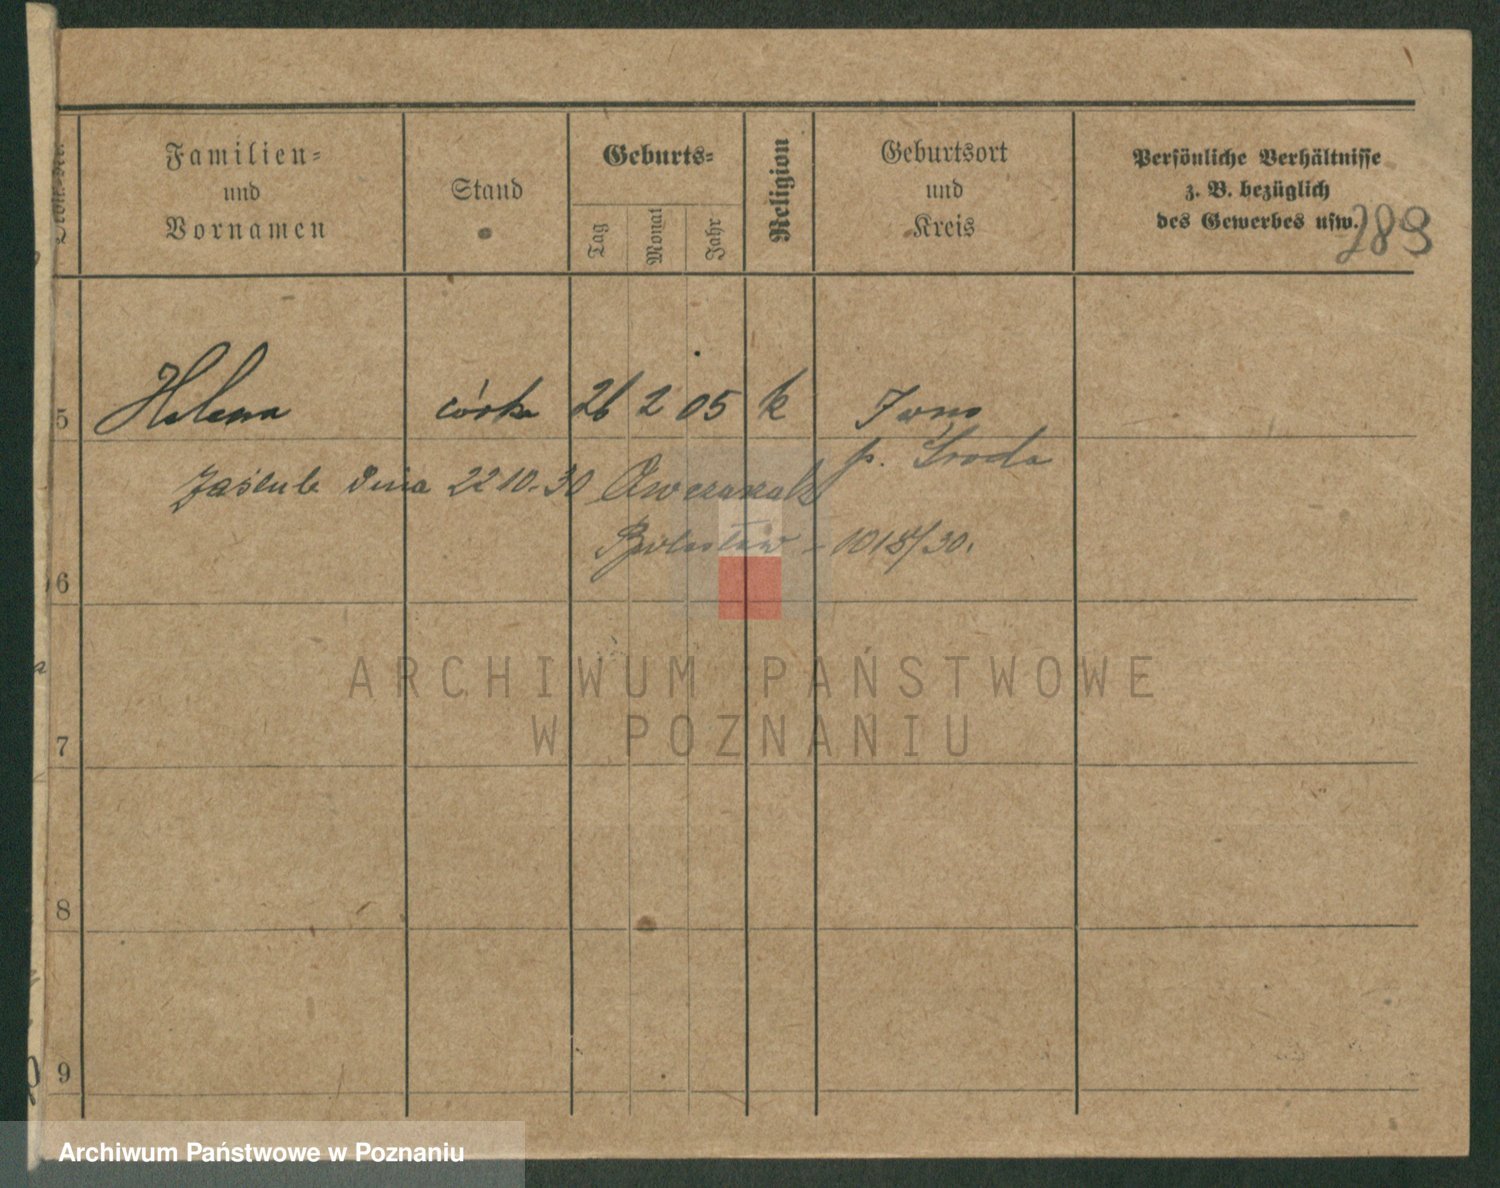 Familien=
und
Vornamen
Stand
Geburts=
Tag
Monat
Jahr
Religion
Geburtsort
und
Kreis
Persönliche Verhältnisse
z. B. bezüglich
des Gewerbes usw.
289
5 Helena córka 26 2 05 k
p. Środa
zaślub. dnia 22 10. 30 Owczarzak
Bolesław - 1015/30.
6
7
8
9
ARCHIWUM PAŃSTWOWE
W POZNANIU
Archiwum Państwowe w Poznaniu